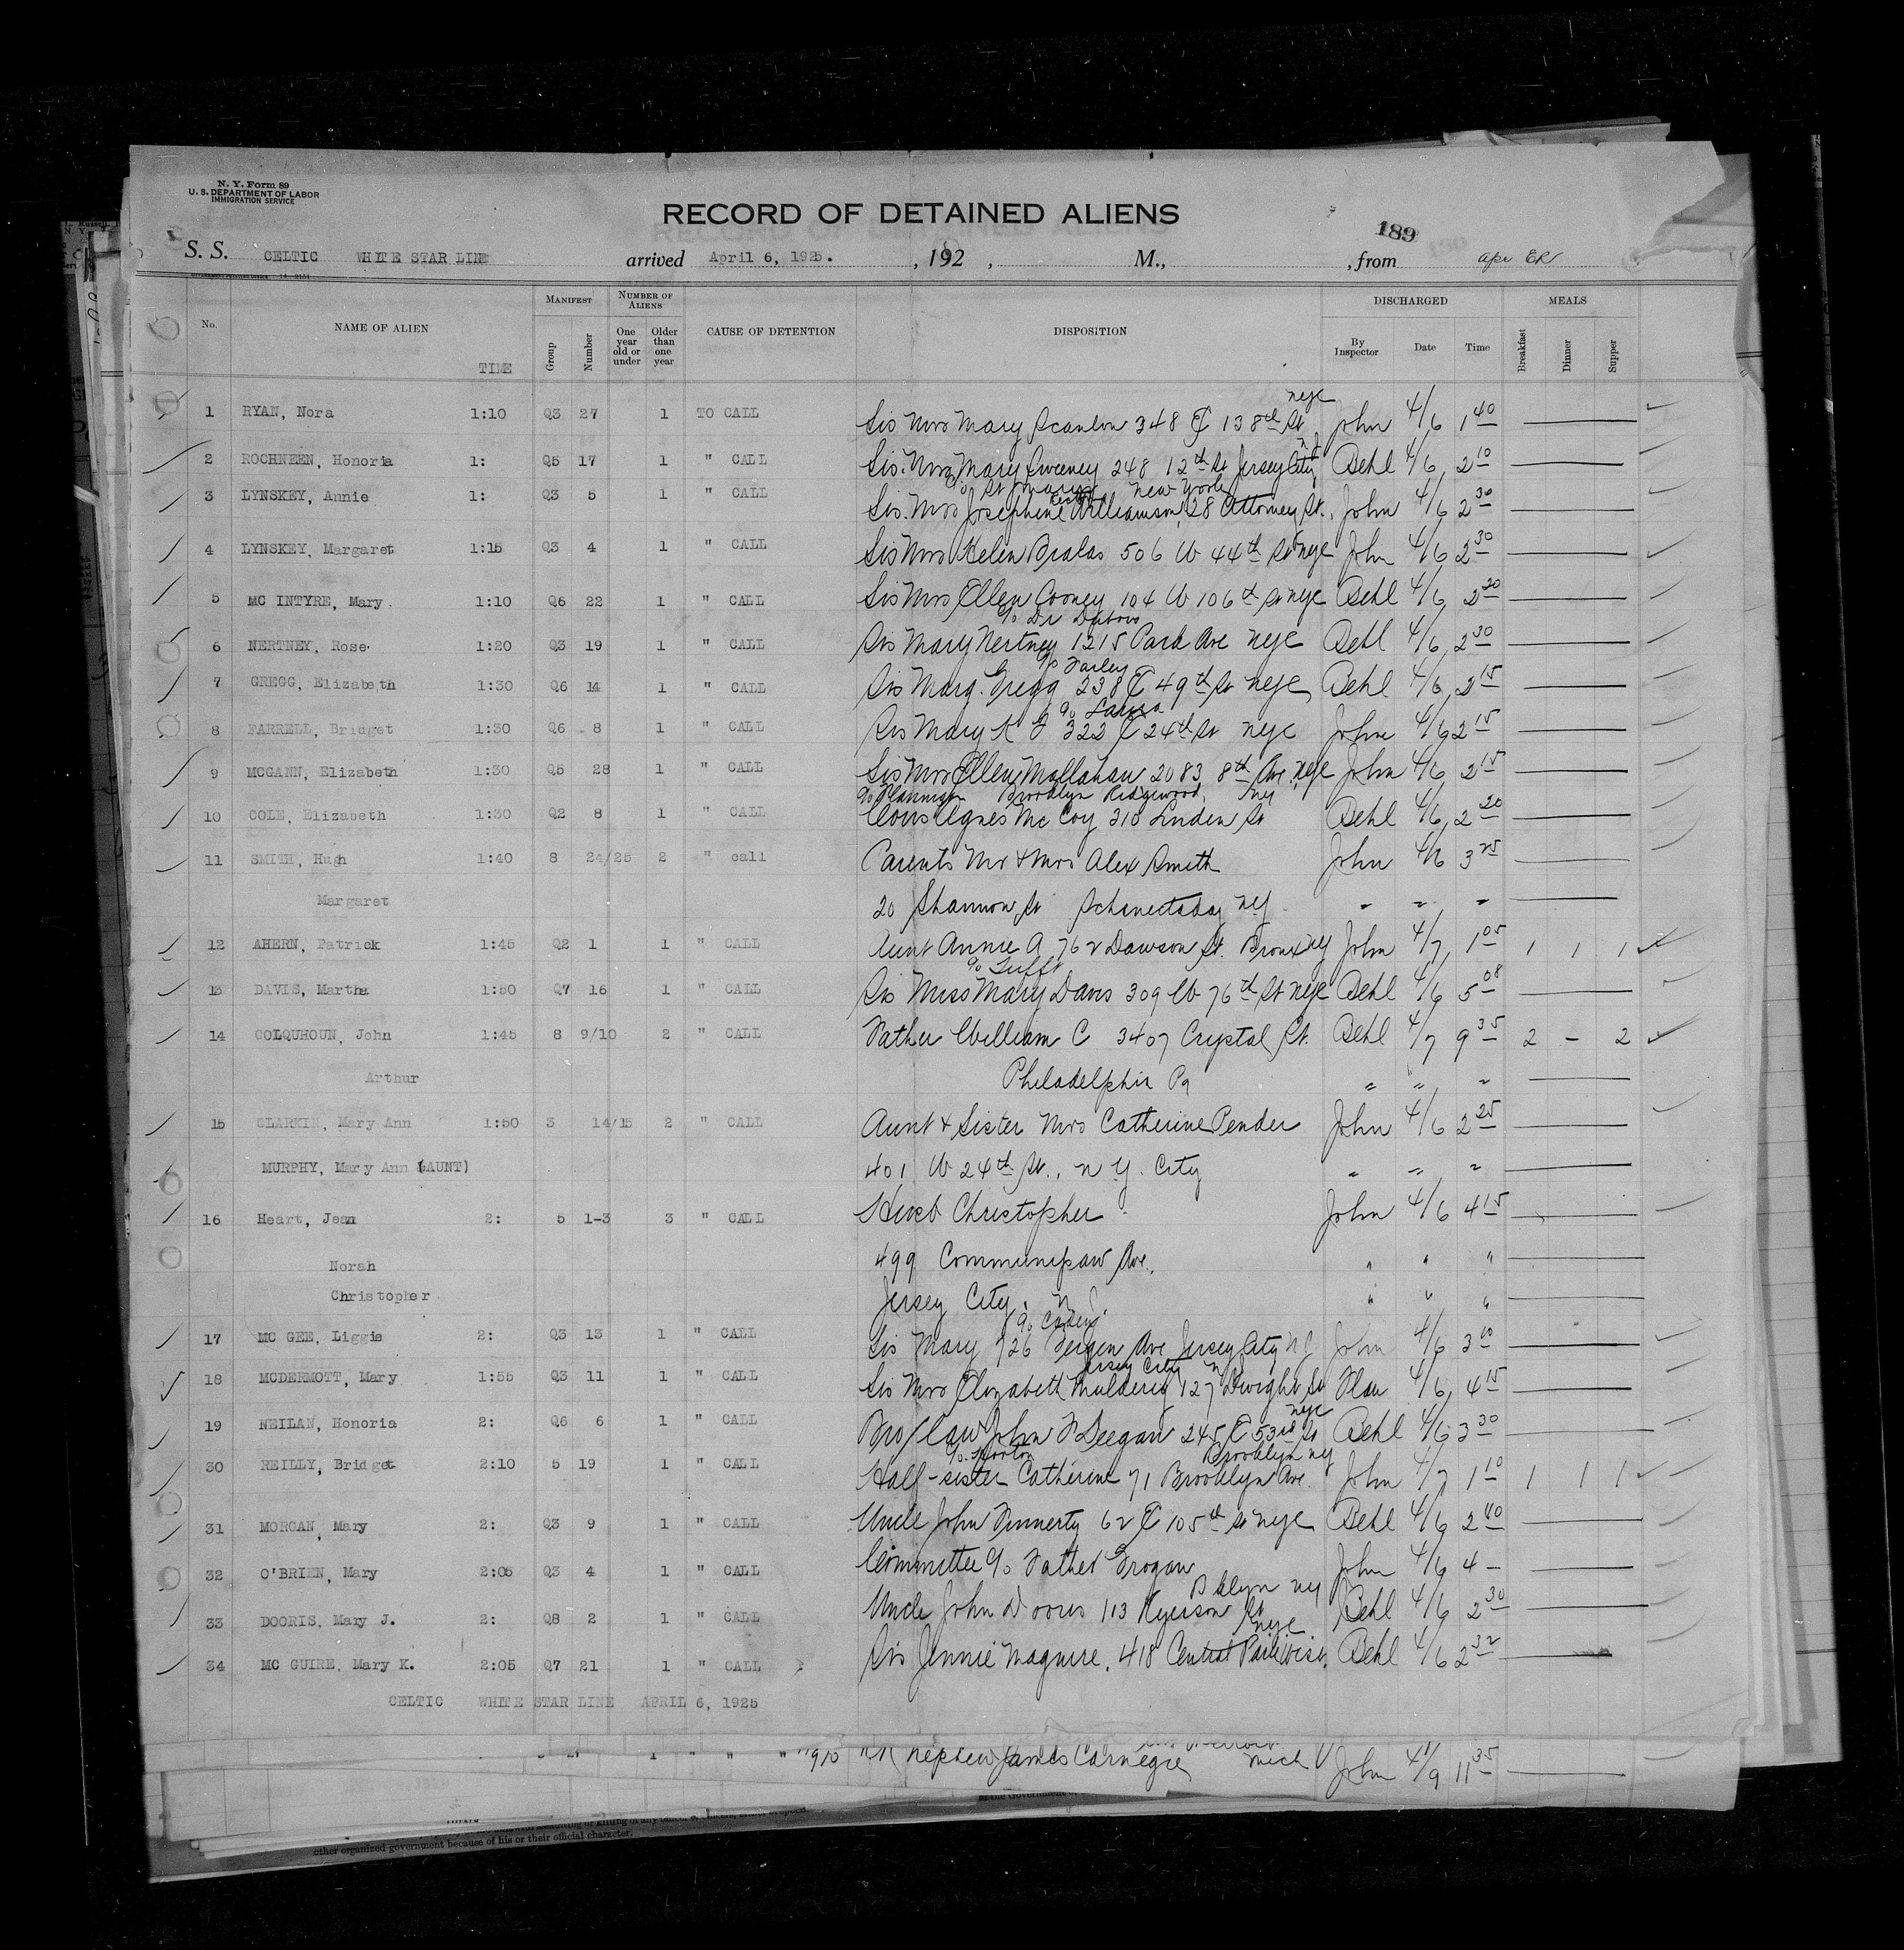 N. Y. Form 89
U. S. DEPARTMENT OF LABOR
IMMIGRATION SERVICE
RECORD OF DETAINED ALIENS
189
S. S. CELTIC WHITE STAR LINE arrived April 6, 1925. , 192 , M., , from
No. NAME OF ALIEN TIME MANIFEST Group Number NUMBER OF ALIENS One year old or under Older than one year CAUSE OF DETENTION DISPOSITION DISCHARGED By Inspector Date Time MEALS Breakfast Dinner Supper
1 RYAN, Nora 1:10 Q3 27 1 TO CALL Sis Mrs Mary Scanlon 348 E 138th St nyc John 4/6 1 40
2 ROCHNEEN, Honoria 1: Q5 17 1 " CALL Sis. Mrs Mary Sweeney 248 12th St Jersey City NJ Behl 4/6 2 10
3 LYNSKEY, Annie 1: Q3 5 1 " CALL Sis. Mrs Josephine Williamson, 28 Attorney St. New York John 4/6 2 30
4 LYNSKEY, Margaret 1:15 Q3 4 1 " CALL Sis Mrs Helen Bralas 506 W 44th St nyc John 4/6 2 30
5 MC INTYRE, Mary 1:10 Q6 22 1 " CALL Sis Mrs Ellen Cooney 104 W 106th St nyc Behl 4/6 2 20
6 NERTNEY, Rose 1:20 Q3 19 1 " CALL Sis Mary Nertney c/o Dr 1215 Park Ave nyc Behl 4/6 2 30
7 GREGG, Elizabeth 1:30 Q6 14 1 " CALL Sis Marg. Gregg c/o Farley 238 E 49th St nyc Behl 4/6 2 15
8 FARRELL, Bridget 1:30 Q6 8 1 " CALL Sis Mary K F 322 E 24th St nyc John 4/6 2 15
9 MCGANN, Elizabeth 1:30 Q5 28 1 " CALL Sis Mrs Ellen Mollahan 2083 8th Ave nyc John 4/6 2 15
10 COLE, Elizabeth 1:30 Q2 8 1 " CALL Cous Agnes McCoy c/o Flannigan 310 Linden St Brooklyn Ridgewood, NY Behl 4/6 2 20
11 SMITH, Hugh 1:40 8 24/25 2 " call Parents Mr & Mrs Alex Smith John 4/6 3 25
Margaret 20 Shannon St Schenectaday NY " " "
12 AHERN, Patrick 1:45 Q2 1 1 " CALL Aunt Annie A 762 Dawson St. Bronx NY John 4/7 1 05 1 1 1
13 DAVIS, Martha 1:50 Q7 16 1 " CALL Sis Miss Mary Davis c/o Tufft 309 W 76th St nyc Behl 4/6 5 08
14 COLQUHOUN, John 1:45 8 9/10 2 " CALL Father William C 3407 Crystal St. Behl 4/7 9 35 2 - 2
Arthur Philadelphia Pa " " "
15 CLARKIN, Mary Ann 1:50 3 14/15 2 " CALL Aunt & Sister Mrs Catherine Pender John 4/6 2 25
MURPHY, Mary Ann (AUNT) 401 W 24th St., N Y. City " " "
16 Heart, Jean 2: 5 1-3 3 " CALL Husb Christopher John 4/6 4 15
Norah 499 Communipaw Ave. " " "
Christopher Jersey City. N J. " " "
17 MC GEE, Liggie 2: Q3 13 1 " CALL Sis Mary 726 Bergen Ave Jersey City NJ John 4/6 3 00
18 MCDERMOTT, Mary 1:55 Q3 11 1 " CALL Sis Mrs Elizabeth Mulderig 127 Dwight St Jersey City NJ Flau 4/6 4 15
19 NEILAN, Honoria 2: Q6 6 1 " CALL Bro/law John F Deegan 245 E 53rd St nyc Behl 4/6 3 30
30 REILLY, Bridget 2:10 5 19 1 " CALL Half-sister Catherine c/o Horton 71 Brooklyn Ave. Brooklyn NY John 4/7 1 10 1 1 1
31 MORGAN, Mary 2: Q3 9 1 " CALL Uncle John Finnerty 62 E 105th St nyc Behl 4/6 2 40
32 O'BRIEN, Mary 2:05 Q3 4 1 " CALL Committee c/o Father Grogan John 4/6 4 -
33 DOORIS, Mary J. 2: Q8 2 1 " CALL Uncle John Dooris 113 Ryerson St Bklyn NY Behl 4/6 2 30
34 MC GUIRE, Mary K. 2:05 Q7 21 1 " CALL Sis Jennie Maguire, 418 Central Park West, nyc Behl 4/6 2 32
CELTIC WHITE STAR LINE APRIL 6, 1925
1 " " " nephew James Carnegie Mich John 4/9 11 35
other organized government because of his or their official character.